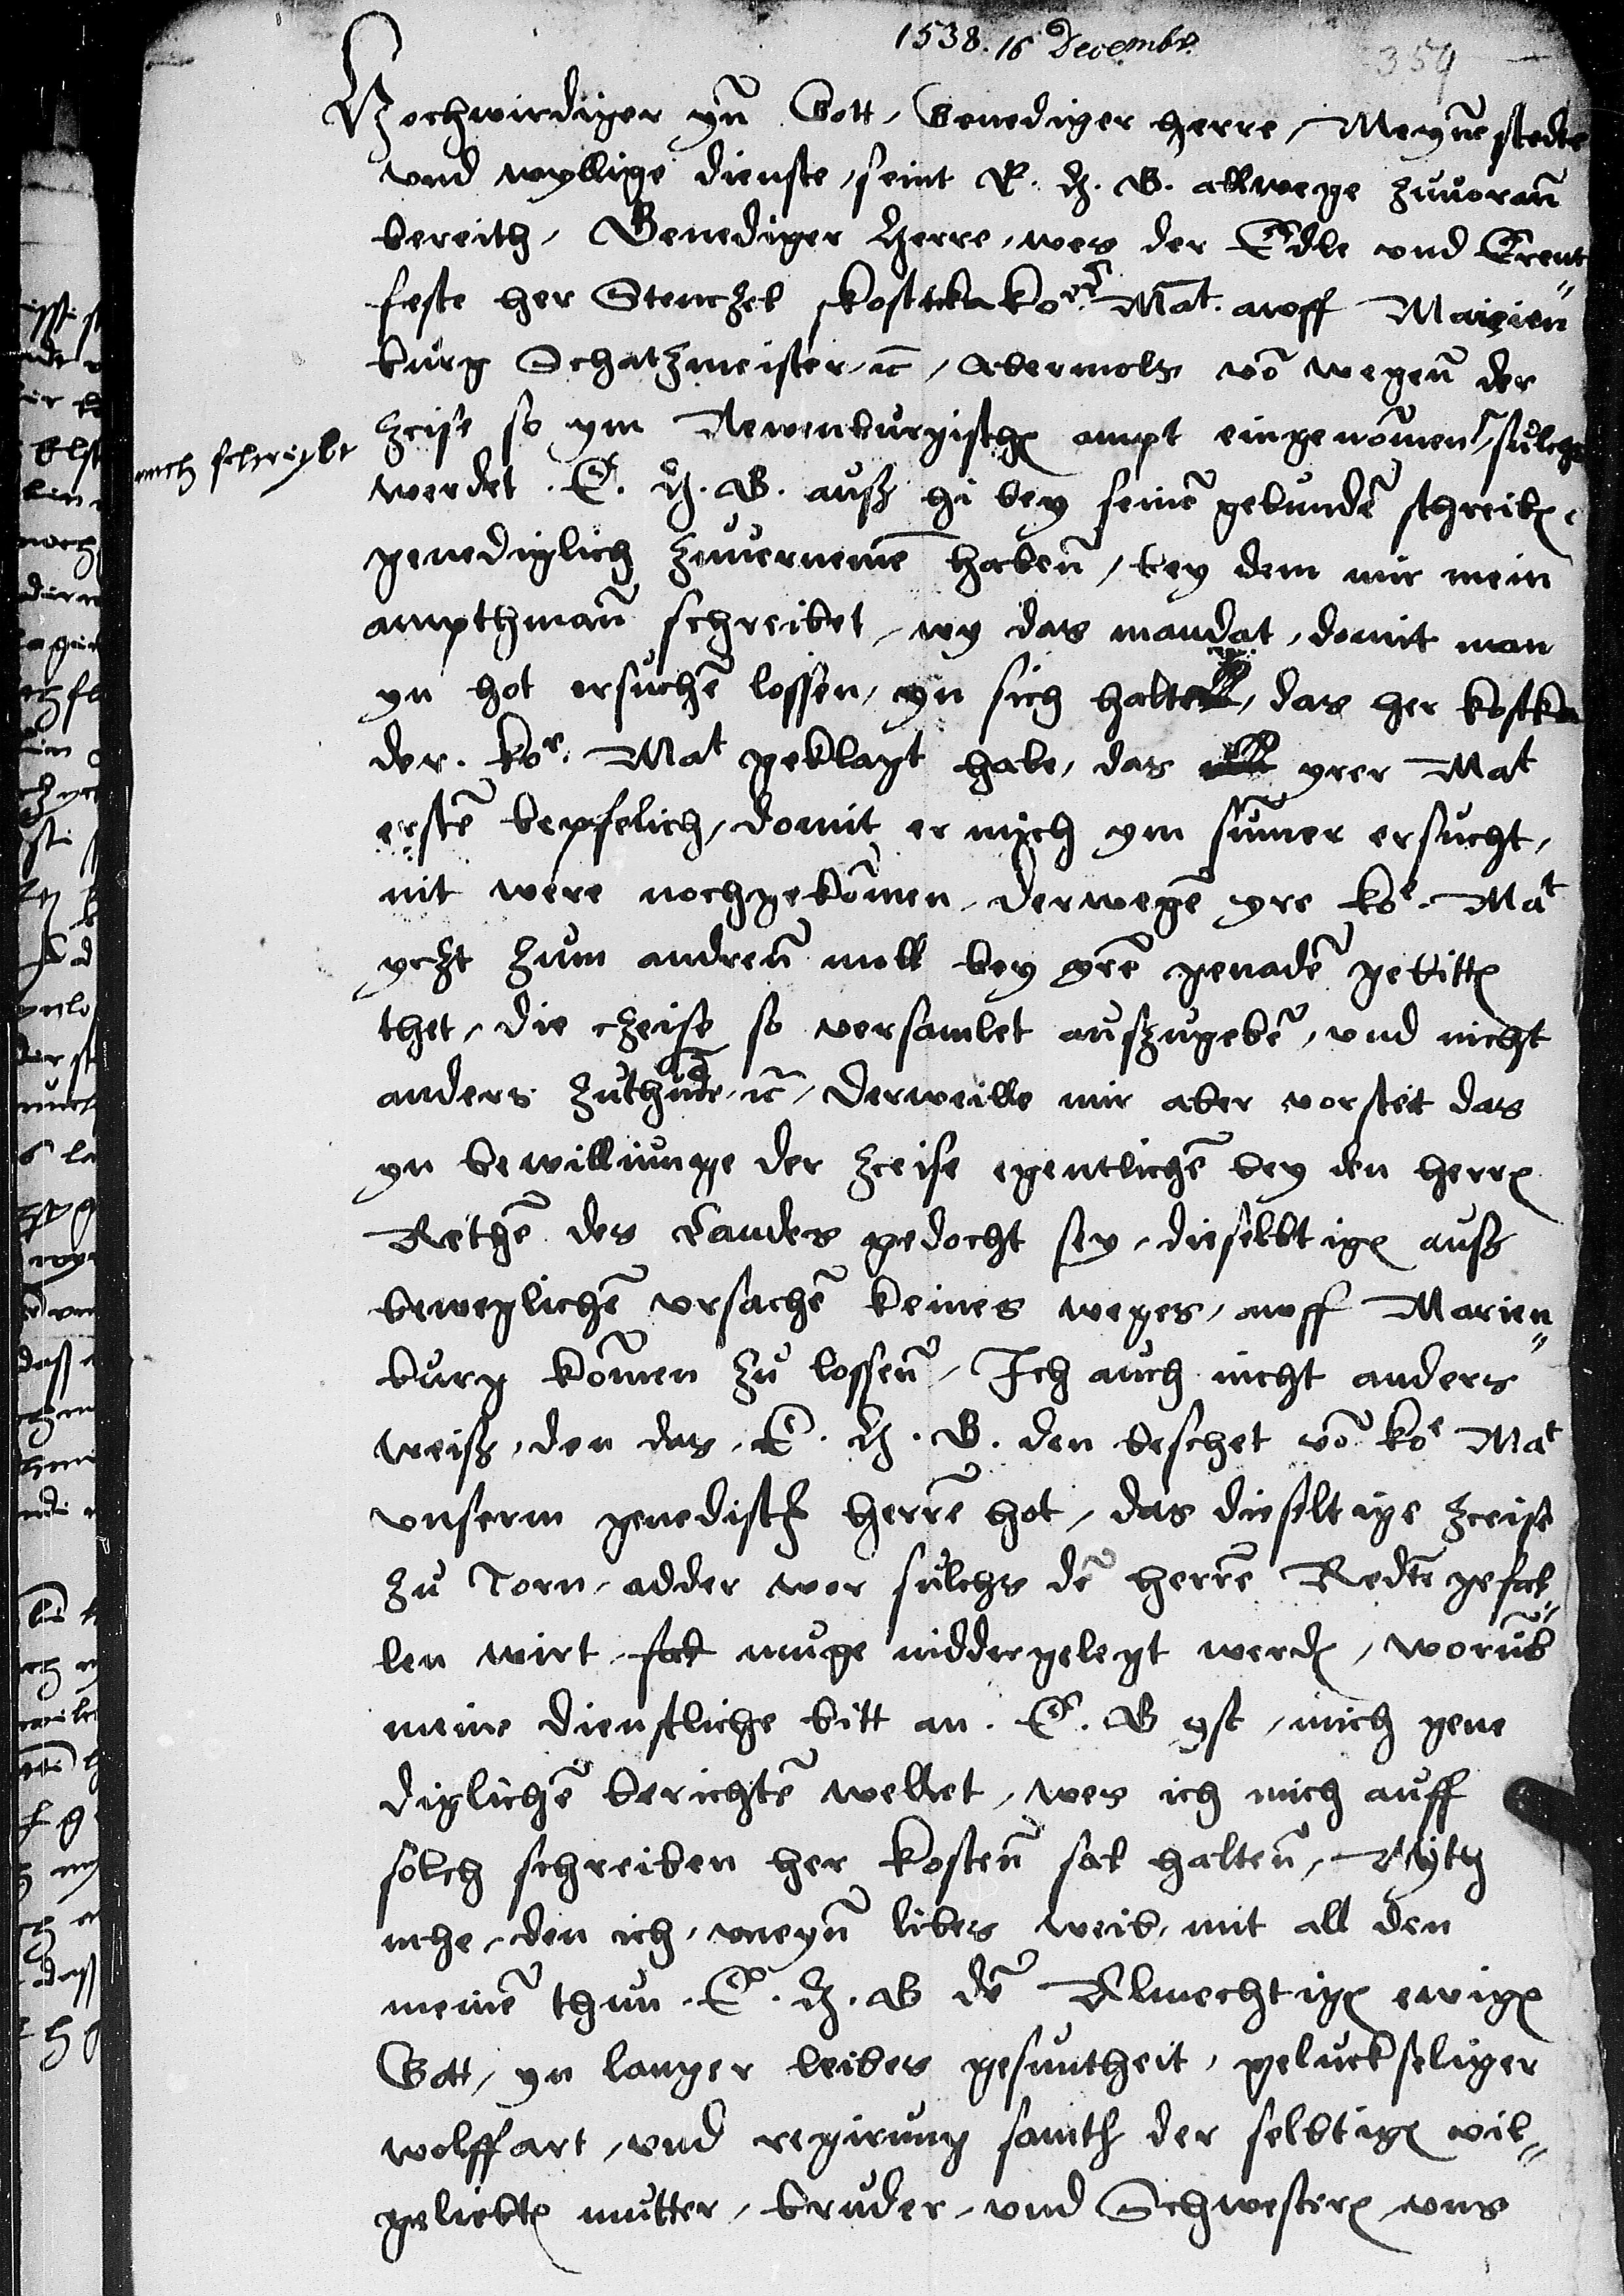 1538. 16 Decembr.
354
Hochwirdiger ynn Gott, Genediger herre, Meyne stedte
und wyllige dienste, seint E. H. G. allwege zuuorann
bereith, Genediger Herre, wes der Edle und Erent
feste her Stenczel Kosttka Kor. Mat. awff Marien"
burg Schatzmeister, ꝛc, Abermols vō wegenn der
Zceise so ym Newenburgischen ampt eingenōmen, sulchs
mich schreybt
werdet. E. H. G. ausz hi bey seinē gebundē schreiben,
genediglich zuuernemē habenn, bey dem mir mein
ampthmann schreibet, wy das mandat, domit man
yn hot ersuchē lossen, yn sich halte, das her Kostka
der. Ko. Mat geklagt habe, das yrer Mat
erstē bephelich, domit er mich ym sūmer ersucht,
nit were nochgekōmen, derwegē yre Ko. Mat
yczt zum andrenn moll bey yrē genadē gebitten
thet, die czeise so versamlet auszugebē, und nicht
anders zuthude, ꝛc, derweille mir aber vorsteit das
yn bewilliunge der zceise egentlichē bey den herren
Rethē des Landes gedocht sey, dieselbtigen ausz
beweglichē ursachē keines weges, awff Marien"
burg kōmen zu lossenn, Ich auch nicht anders
weisz, den das. E. H. G. den beschet vō Ko Mat
unserm genedisth herrē hot, das dieseltige zceise
zu Torn, adder wor sulchs dē herrē Redtē gefal"
len wirt muge niddergelegt werden, worūb
meine dienstliche bitt an. E. G yst, mich gene
diglichē berichtē wellet, wes ich mich auff
solch schreiben her Kostenn sal haltenn, Nyth
mhe, den ich, meynn libes weib, mit all den
meinē thun. E. H. G dē Almechtigen ewigen
Gott, yn langer leibes gesuntheit, geluckseliger
wolffart, und regirung samth der selbtigen wil"
geliebten mutter, bruder, und Schwesteren uns